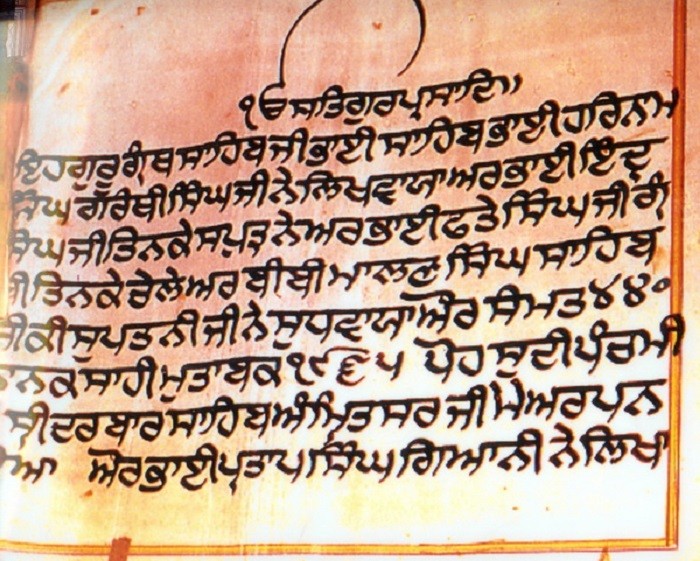 ੴ ਸਤਿਗੁਰਪ੍ਰਸਾਦਿ॥
ਇਹ ਗੁਰੂ ਗ੍ਰੰਥ ਸਾਹਿਬ ਜੀ ਭਾਈ ਸਾਹਿਬ ਭਾਈ ਹਰਿਨਾਮ
ਸਿੰਘ ਗ੍ਰੰਥੀ ਸਿੰਘ ਜੀ ਨੇ ਲਿਖਵਾਯਾ ਅਰ ਭਾਈ ਇੰਦ੍ਰ
ਸਿੰਘ ਜੀ ਤਿਨਕੇ ਸਪੁਤ੍ਰ ਨੇ ਅਰ ਭਾਈ ਫਤੇ ਸਿੰਘ ਜੀ ਗ੍ਰੰ
ਤਿਨਕੇ ਚੇਲੇ ਅਰ ਬੀਬੀ ਮਾਲਣ ਸਿੰਘ ਸਾਹਿਬ
ਜੀ ਕੀ ਸੁਪਤਨੀ ਜੀ ਨੇ ਸੁਧਵਾਯਾ ਔਰ ਸੰਮਤ ੪੪੦
ਨਾਨਕ ਸਾਹੀ ਮੁਤਾਬਕ ੧੯੬੫ ਪੋਹ ਸੁਦੀ ਪੰਚਮੀ
ਸ੍ਰੀ ਦਰਬਾਰ ਸਾਹਿਬ ਅੰਮ੍ਰਿਤਸਰ ਜੀ ਮੇ ਅਰਪਨ
ਔਰ ਭਾਈ ਪ੍ਰਤਾਪ ਸਿੰਘ ਗਿਆਨੀ ਨੇ ਲਿਖਾ